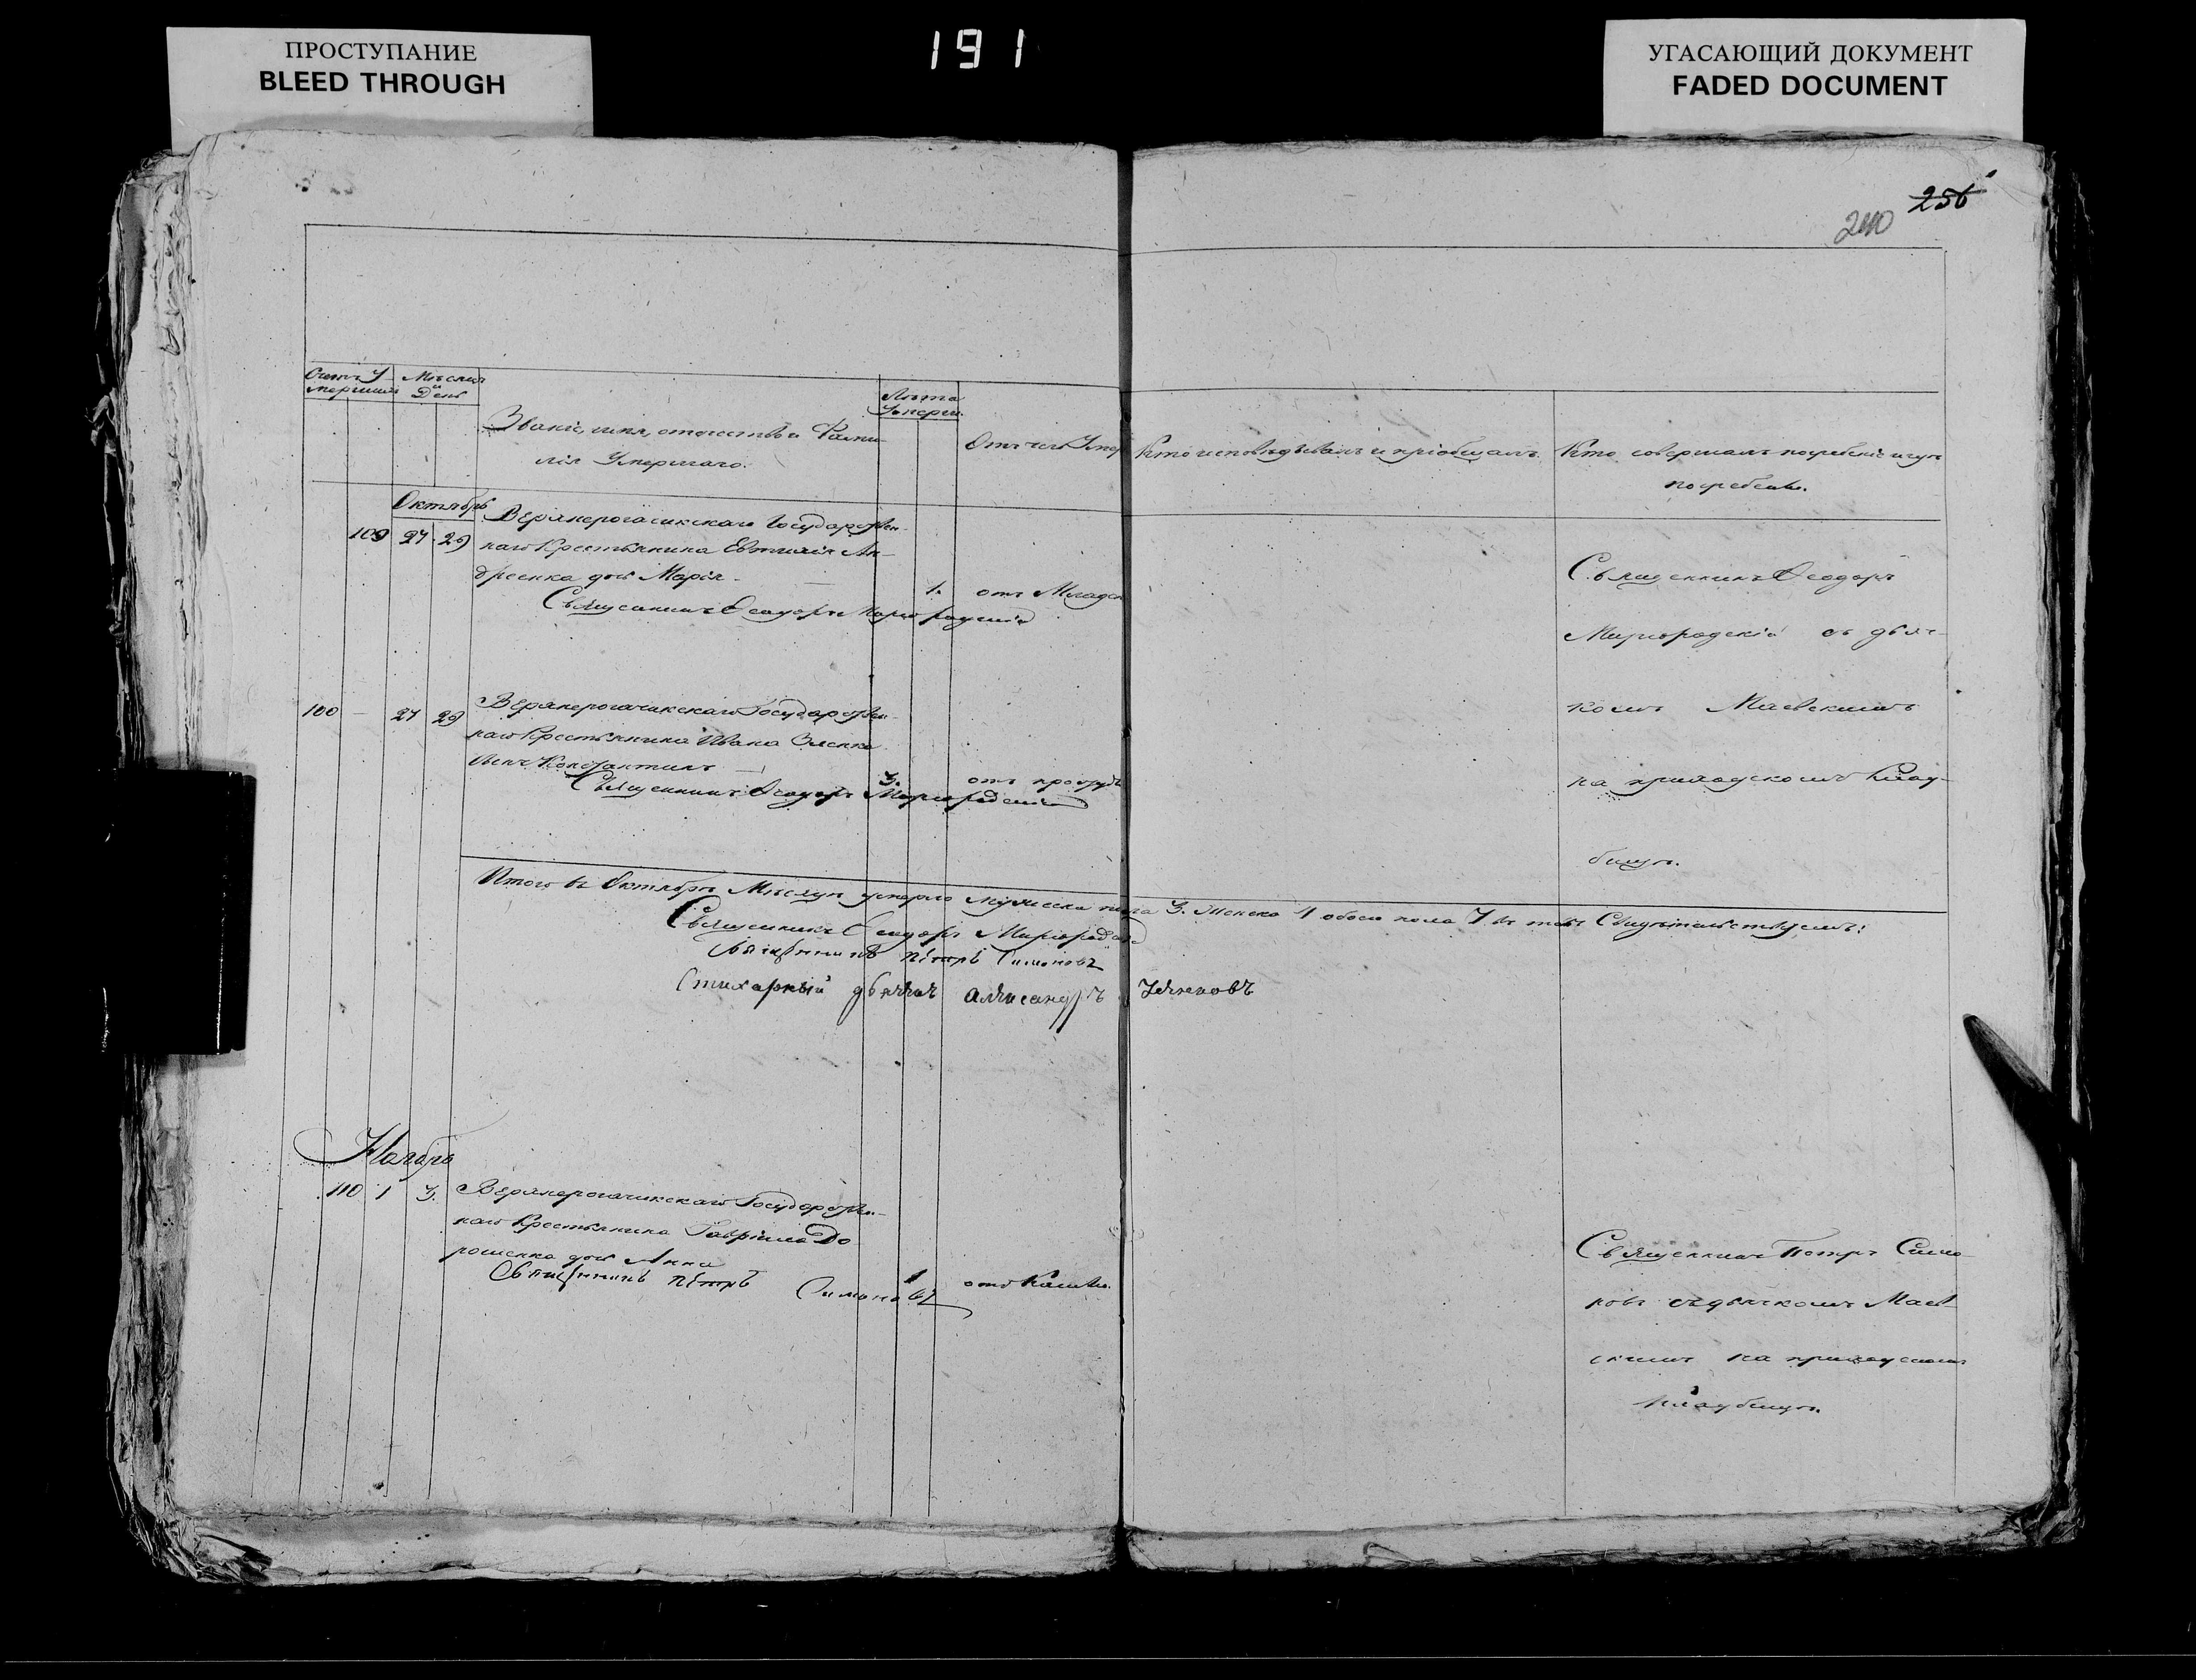 ПРОСТУПАНИЕ
BLEED THROUGH
191
УГАСАЮЩИЙ ДОКУМЕНТ
FADED DOCUMENT
256
240
Счетъ У
мершихъ
Мѣсяцъ
и
День
Званіе, имя, отчество и Фами-
лія Умершаго.
Лѣта
Умерш.
Отъ чего Умер
Кто исповѣдывалъ и пріобщалъ
Кто совершалъ погребеніе и гдѣ
погребены.
Октябрь
109 27 29 Верхнерогачикскаго Государствен-
наго Крестьянина Евтихія Ан-
дреенка дочь Марія 1. отъ Младен
Священникъ Ѳеодоръ Миргородскій
Священникъ Ѳеодоръ
Миргородскій съ дья-
комъ Маевскимъ
на приходскомъ Клад-
бищѣ.
100 — 27 29 Верхнерогачикскаго Государствен-
наго Крестьянина Ивана
сынъ Константинъ 3. отъ простуды
Священникъ Ѳеодоръ Миргородскій
Итого въ Октябрѣ Мѣсяцѣ умерло мужеска пола 3. Женска 4 обоего пола 7 въ томъ Свидѣтельствуемъ:
Священникъ Ѳеодоръ Миргородскій
Священникъ Петръ Симоновъ
Стихарный дьячокъ Александръ
Ноябрь
110 1 3. Верхнерогачикскаго Государствен-
наго Крестьянина Гавріила До
рошенка дочь Анна 1 отъ Кашля.
Священникъ Петръ Симоновъ
Священникъ Петръ Симо
новъ съ дьячкомъ Маев
скимъ на приходскомъ
Кладбищѣ.